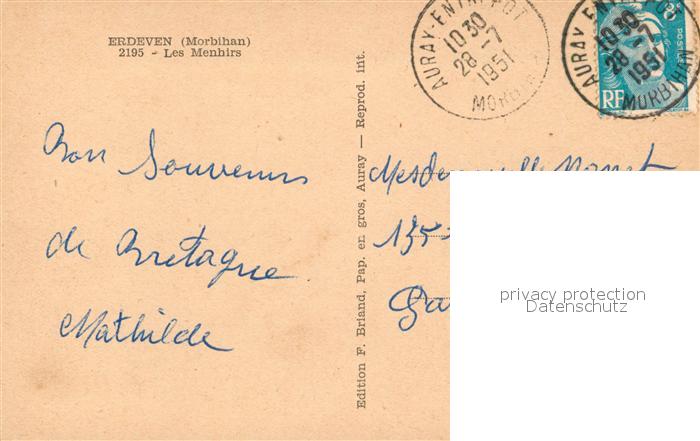 ERDEVEN (Morbihan)
2195 - Les Menhirs
AURAY-ENTREPOT
10 30
28 - 7
1951
MORBIHAN
AURAY ENTREPOT
10 30
28 - 7
1951
MORBIHAN
8F
POSTES
RF
Bon Souvenirs
de Bretagne
Mathilde
Edition F. Briand, Pap. en gros, Auray — Reprod. int.
135
privacy protection
Datenschutz